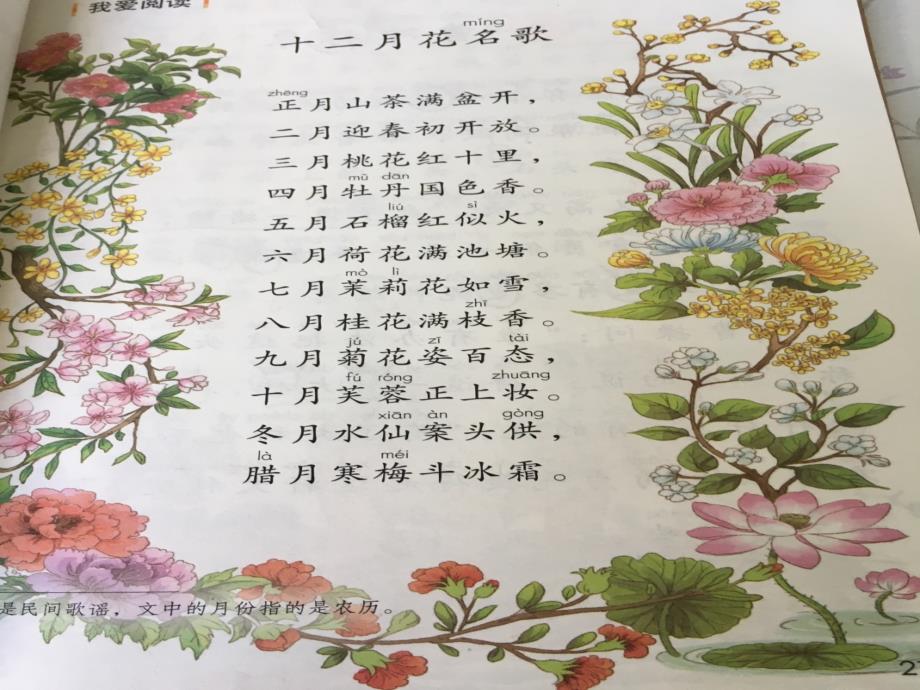 我爱阅读
míng
十二月花名歌
zhēng
正月山茶满盆开，
二月迎春初开放。
三月桃花红十里，
mǔ dān
四月牡丹国色香。
liú sì
五月石榴红似火，
六月荷花满池塘。
mò lì
七月茉莉花如雪，
zhī
八月桂花满枝香。
jú zī tài
九月菊花姿百态，
fú róng zhuāng
十月芙蓉正上妆。
xiān àn gòng
冬月水仙案头供，
là méi
腊月寒梅斗冰霜。
是民间歌谣，文中的月份指的是农历。